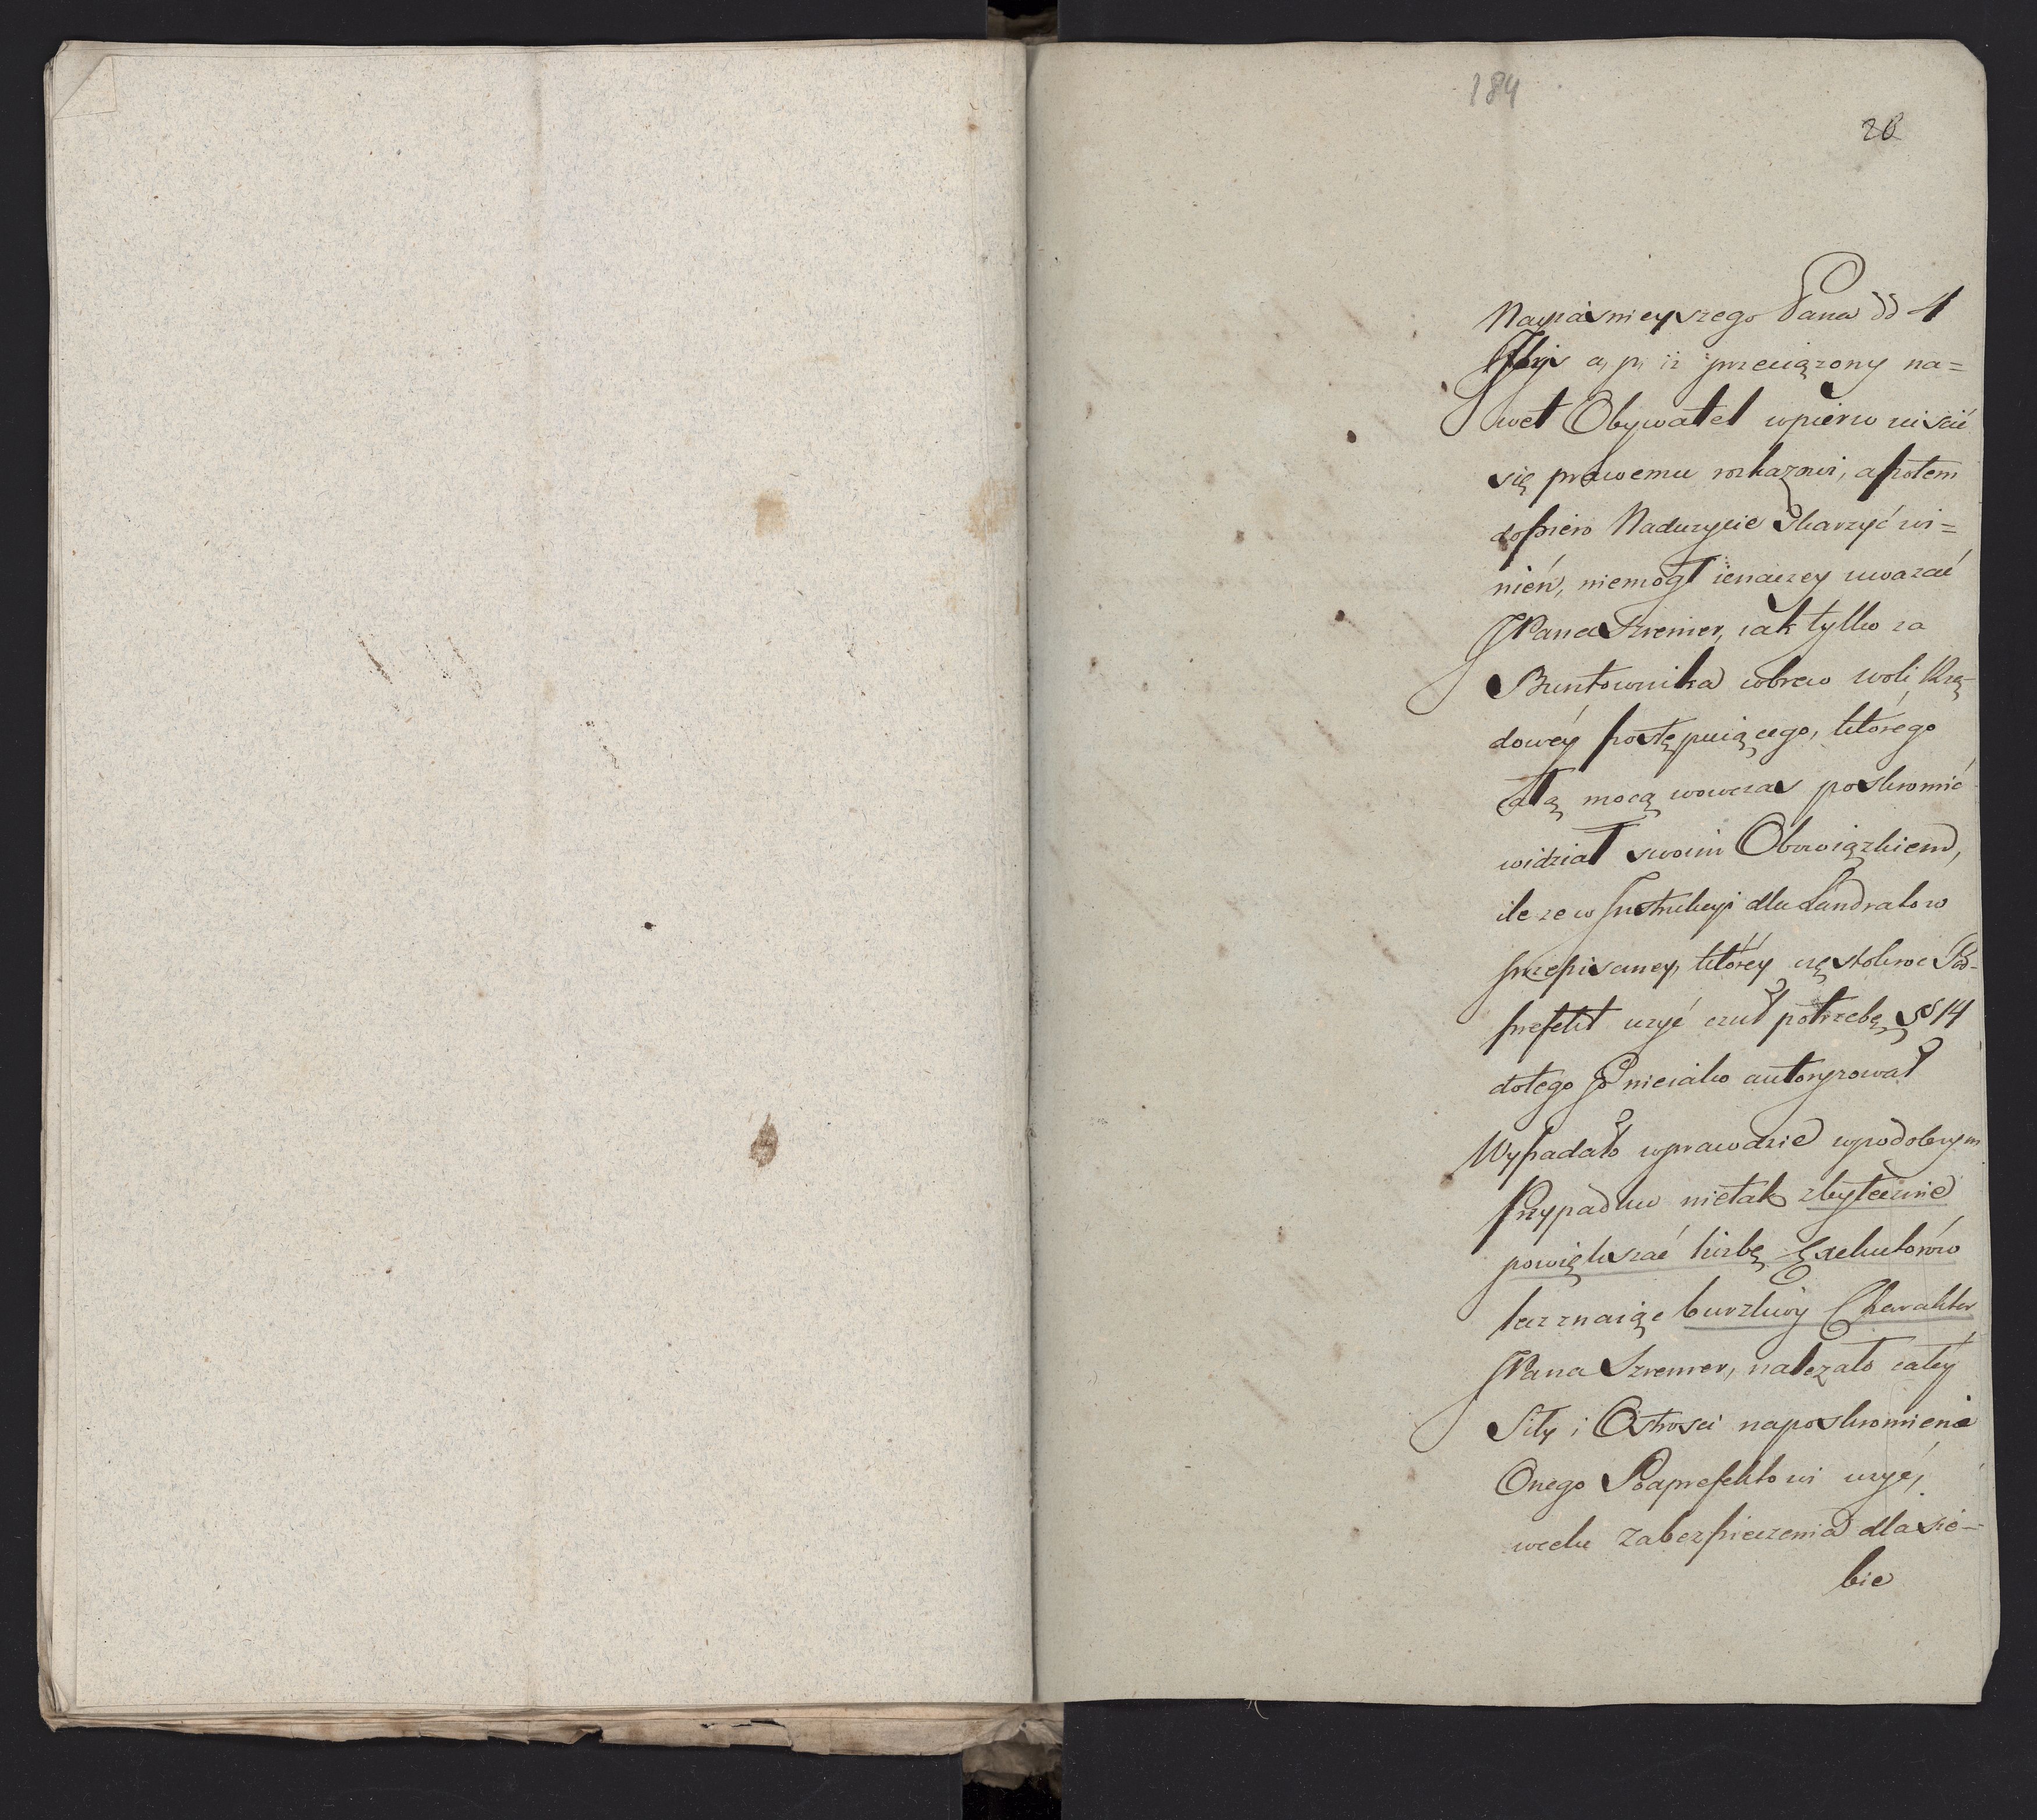 184
20
Nayiaśnieyszego Pana dd 4
a, p, iż przeciązony na=
wet Obywatel wpierw uiścić
się prawemu rozkazowi, a potem
dopiero Naduzycie Skarzyć wi=
nień, niemógł ienaczey uwazać
JPana Szremer, iak tylko za
Buntownika wbrew woli Rzą-
dowéy postępuiącego, którego
całą mocą wowczas poskromić
widział swoim Obowiązkiem,
ile ze w Instrukcyi dla Landratow
przepisaney, któréy częstokroć Pod-
prefekt uzyć czuł potrzebę, § 14
do tego go nieiako autoryzował
Wypadało wprawdzie wpodobnym
Przypadku nietak zbytecznie
powiększać liczbę Exekutorów
lecz znaiąc burzliwy Charakter
JPana Szremer, nalezało całéy
Siły i Ostrosci na poskromienie
Onego Podprefektowi uzyć,
wcelu Zabezpieczenia dla sie-
bie